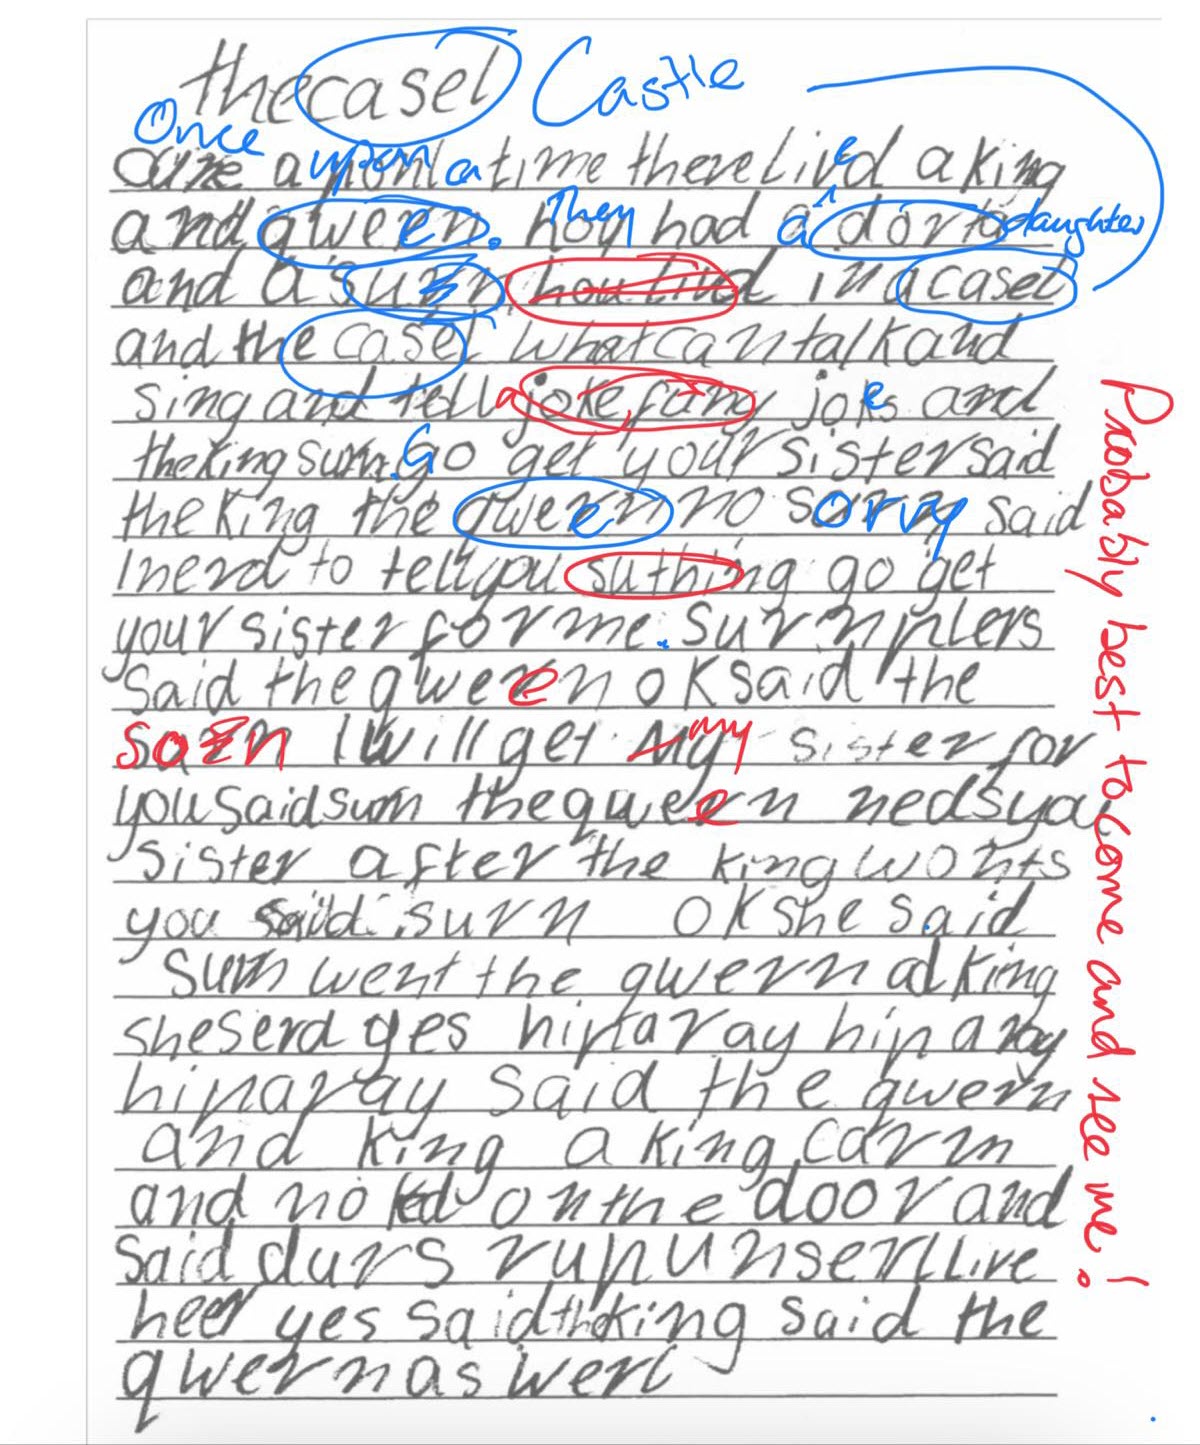 the casel Castle
Once
a upon a time there Lived a king
and qween. They had a dorto daughter
and a surn hou Livd in a casel
and the casel what can talk and
sing and tell a joke, fany jokes and
the king surn. Go get your sister said
the king the qween no sorry said
I nerd to tell you suthing go get
your sister for me. surn plers
said the qween ok said the
son I will get my my sister for
you said surn the qween neds you
sister after the king wonts
you said surn ok she said
surn went the qwern ad king
she serd yes hiparay hiparay
hiparay said the qwern
and king a king carm
and noked on the door and
said durs rupunserl Live
heer yes said the king said the
qwern as werl
Probably best to come and see me!